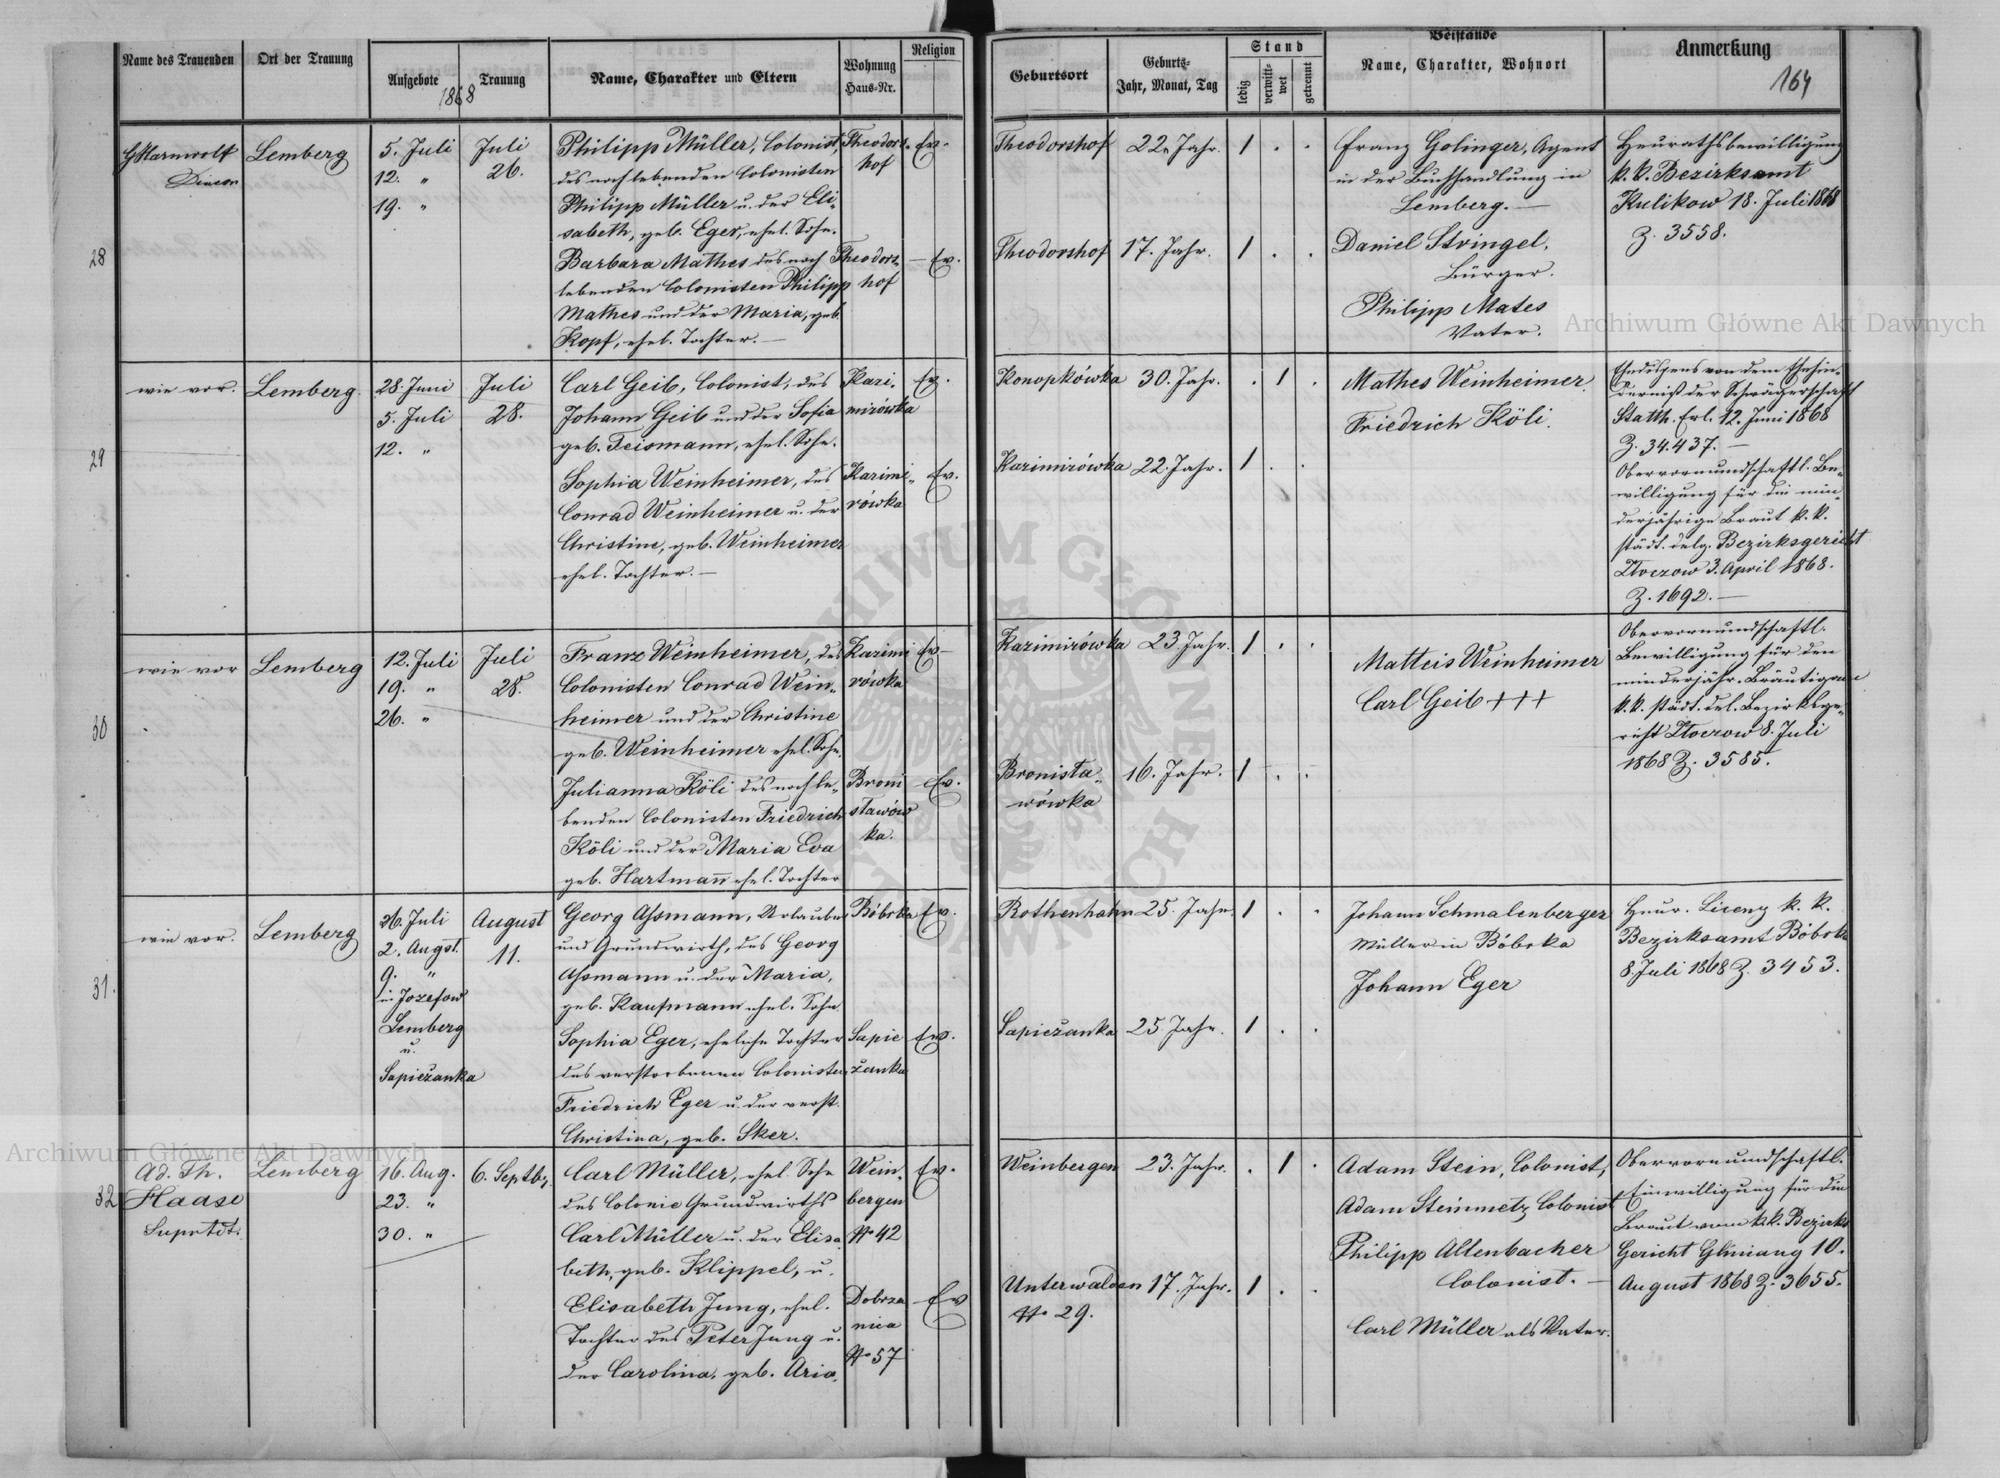 Name des Trauenden
Ort der Trauung
Aufgebote
Trauung
1868
Name, Charakter und Eltern
Wohnung
Haus-Nr.
Religion
Geburtsort
Geburts-
Jahr, Monat, Tag
Stand
ledig
verwitt-
wet
getrennt
Beistände
Name, Charakter, Wohnort
Anmerkung
164
28
Lemberg
5. Juli
12. "
19. "
Juli
26.
Philipp Müller, Colonist,
des nochlebenden Colonisten
Philipp Müller u. der Eli-
sabeth, geb. Eger, ehel. Sohn.
Theodors-
hof
Ev.
Barbara Mathes des noch
lebenden Colonisten Philipp
Mathes und der Maria, geb.
Kopf, ehel. Tochter. —
Theodors-
hof
Ev.
Theodorshof
22. Jahr.
1 . .
Theodorshof
17. Jahr.
1 . .
Franz Golinger, Agent
in der Buchhandlung in
Lemberg. —
Daniel Stringel.
Bürger.
Philipp Mates
Vater.
Heurathsbewilligung
k. k. Bezirksamt
Kulikow 18. Juli 1868
Z. 3558.
29
wie vor.
Lemberg.
28. Juni
5. Juli
12. "
Juli
28.
Carl Geib, Colonist, des
Johann Geib und der Sofia
geb. Teismann, ehel. Sohn.
Kazi-
mirówka
Ev.
Sophia Weinheimer, des
Conrad Weinheimer u. der
Christine, geb. Weinheimer
ehel. Tochter. —
Kazimi-
rówka
Ev.
Konopkówka
30. Jahr.
. 1 .
Kazimirówka
22. Jahr.
1 . .
Mathes Weinheimer.
Friedrich Köli.
Ehedispens von dem Ehehin-
derniß der Schwägerschaft
Statth. Erl. 12. Juni 1868
Z. 34.437. —
Obervormundschaftl. Be-
willigung für die min-
derjährige Braut k. k.
städt. delg. Bezirksgericht
Zloczow 3. April 1868.
Z. 1692. —
30
wie vor
Lemberg
12. Juli
19. "
26. "
Juli
28.
Franz Weinheimer, des
Colonisten Conrad Wein-
heimer und der Christine
geb. Weinheimer ehel. Sohn.
Kazimi
rówka
Ev
Julianna Köli des nochle-
benden Colonisten Friedrich
Köli und der Maria Eva
geb. Hartmann ehel. Tochter
Broni
sławów
ka.
Ev.
Kazimirówka
23. Jahr.
1 . .
Bronisła-
wówka
16. Jahr.
1 . .
Matteis Weinheimer
Carl Geib +++
Obervormundschaftl.
Bewilligung für den
minderjähr. Bräutigam
k. k. städt. del. Bezirksge-
richt Zloczow 8. Juli
1868 Z. 3585.
31.
wie vor.
Lemberg
26. Juli
2. Augst.
9. "
in Jozefow
Lemberg
u.
Sapieżanka
August
11.
Georg Aßmann, Urlauber
und Grundwirth, des Georg
Aßmann u. der Maria,
geb. Kaufmann ehel. Sohn
Bóbrka
Ev.
Sophia Eger, eheliche Tochter
des verstorbenen Colonisten
Friedrich Eger u. der verst.
Christina, geb. Sker.
Sapie
żanka
Ev.
Rothenhahn
25. Jahr
1 . .
Sapieżanka
25. Jahr.
1 . .
Johann Schmalenberger
Müller in Bóbrka
Johann Eger
Heur. Lizenz k. k.
Bezirksamt Bóbrka
8. Juli 1868 Z. 3453.
32
Ad. Th.
Haase
Suprtdt.
Lemberg
16. Aug.
23. "
30. "
6. Septbr.
Carl Müller, ehel. Sohn
des Colonie Grundwirths
Carl Müller u. der Elisa
beth, geb. Klippel, u.
Wein-
bergen
No 42
Ev.
Elisabeth Jung, ehel.
Tochter des Peter Jung u.
der Carolina, geb. Aria.
Dobrza
nica
No 57
Ev
Weinbergen
23. Jahr.
. 1 .
Unterwalden
No 29.
17. Jahr.
1 . .
Adam Stein, Colonist,
Adam Steinmetz Colonist
Philipp Altenbacher
Colonist. —
Carl Müller als Vater.
Obervormundschaftl.
Einwilligung für die
Braut vom k.k. Bezirks
Gericht Gliniany 10.
August 1868 Z. 3655.
Archiwum Główne Akt Dawnych
Archiwum Główne Akt Dawnych